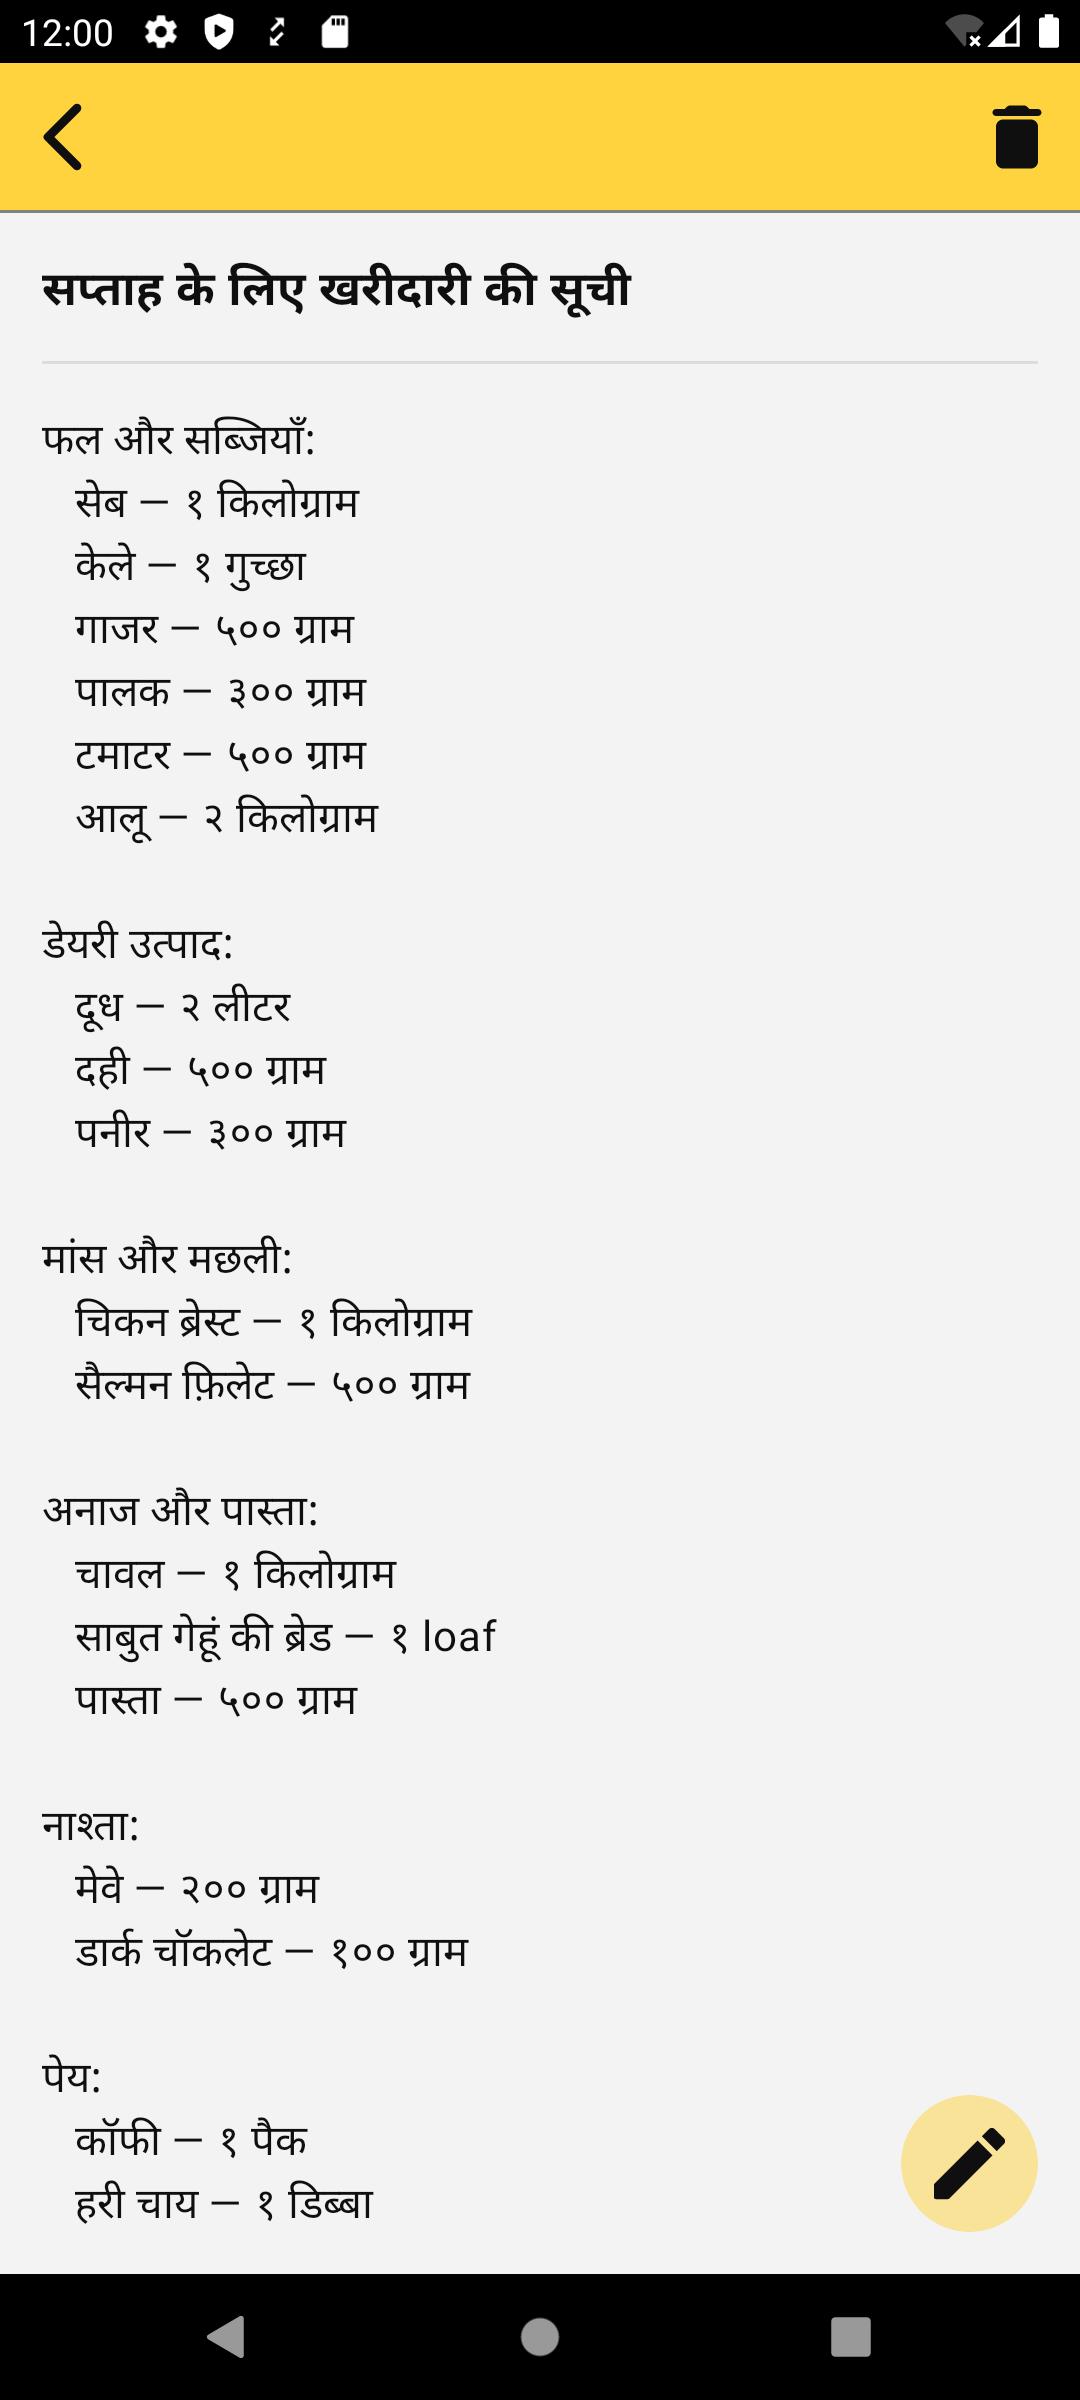 12:00
सप्ताह के लिए खरीदारी की सूची
फल और सब्जियाँ:
सेब — १ किलोग्राम
केले — १ गुच्छा
गाजर — ५०० ग्राम
पालक — ३०० ग्राम
टमाटर — ५०० ग्राम
आलू — २ किलोग्राम
डेयरी उत्पाद:
दूध — २ लीटर
दही — ५०० ग्राम
पनीर — ३०० ग्राम
मांस और मछली:
चिकन ब्रेस्ट — १ किलोग्राम
सैल्मन फ़िलेट — ५०० ग्राम
अनाज और पास्ता:
चावल — १ किलोग्राम
साबुत गेहूं की ब्रेड — १ loaf
पास्ता — ५०० ग्राम
नाश्ता:
मेवे — २०० ग्राम
डार्क चॉकलेट — १०० ग्राम
पेय:
कॉफी — १ पैक
हरी चाय — १ डिब्बा